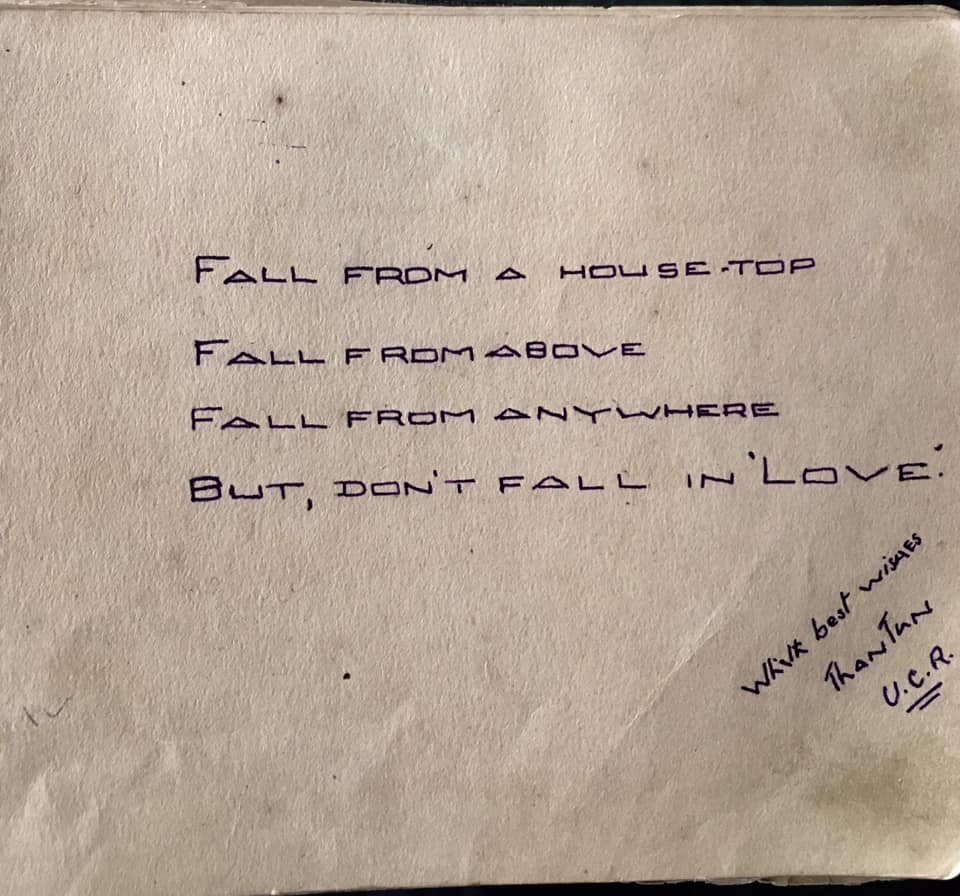 FALL FROM A HOUSE-TOP
FALL FROM ABOVE
FALL FROM ANYWHERE
BUT, DON'T FALL IN 'LOVE'.
With best wishes
Than Tun
U.C.R.